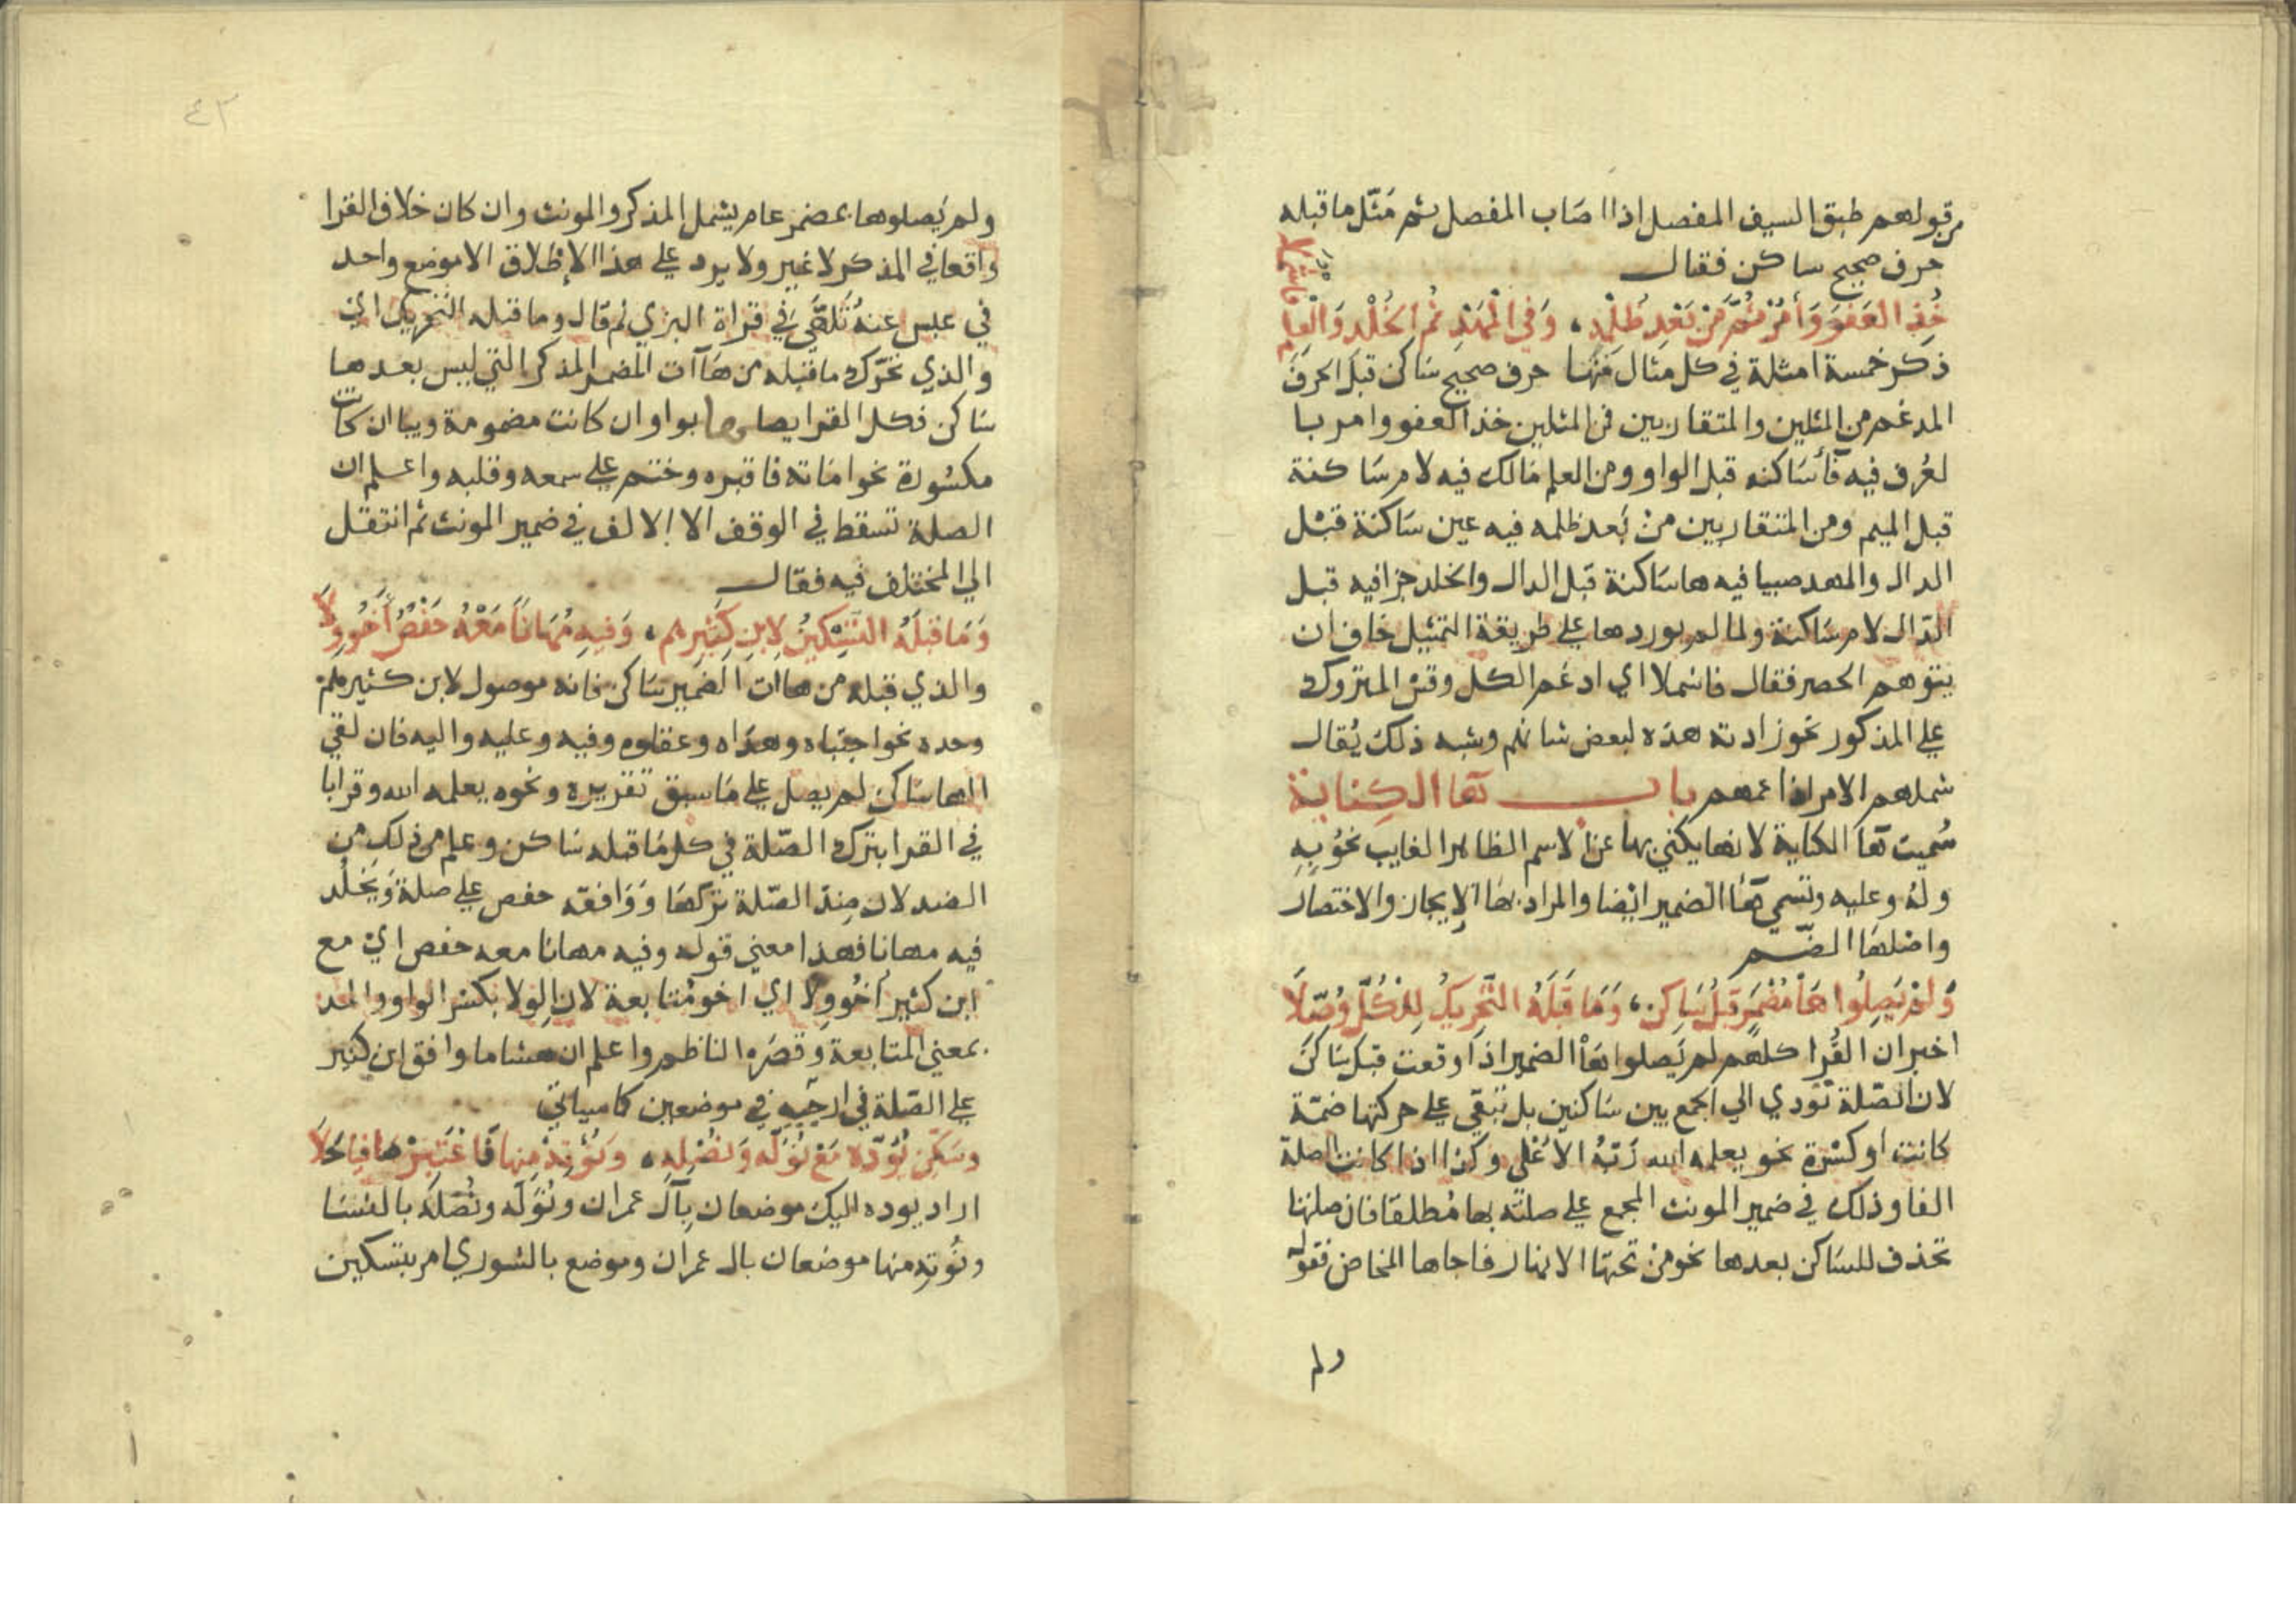 من قولهم طبق السيف المفصل اذا اصاب المفصل ثم مثل ما قبله
حرف صحيح ساكن فقال
خُذِ الْعَفْوَ وَأْمُرْ ثُمَّ مِنْ بَعْدِ ظُلْمِهِ ، وَفِي الْمَهْدِ ثُمَّ الْخُلْدِ وَالْعِلْمِ فَاشْمُلَا
ذكر خمسة امثلة في كل مثال منها حرف صحيح ساكن قبل الحرف
المدغم من المثلين والمتقاربين فمن المثلين خذ العفو وامر با
لعُرف فيه فأ ساكنه قبل الواو ومن العلم مالك فيه لام ساكنة
قبل الميم ومن المتقاربين من بَعد ظلمه فيه عين ساكنة قبل
الدال والمهد صبيا فيه ها ساكنة قبل الدال والخلد جزا فيه قبل
الدّال لام ساكنة ولما لم يوردها على طريقة التمثيل خاف ان
يتوهم الحصر فقال فاشملا اي ادغم الكل وقس المتروك
على المذكور نحو زادته هذه لبعض شانهم وشبه ذلك يُقال
شملهم الامر اذا عمهم باب هآ الكناية
سُميت هآ الكناية لانها يكنى بها عن الاسم الظاهر الغايب نحوُ بِهِ
ولهُ وعليه وتسمى هآ الضمير ايضا والمراد بها الإيجاز والاختصار
واصلها الضّم
وَلَمْ يَصِلُوا هَا مُضْمَرٍ قَبْلَ سَاكِنٍ ، وَمَا قَبْلَهُ التَّحْرِيكُ لِلْكُلِّ وُصِّلَا
اخبر ان القُرا كلهم لم يَصلوا هَآ الضمير اذا وقعت قبل ساكن
لان الصّلة تؤدي الى الجمع بين ساكنين بل تبقى على حركتها ضمّة
كانت او كسْرة نحو يعلمه الله رَبّهُ الاعْلى وكذا اذا كانت الصلة
الفا وذلك في ضمير المونث المجمع على صلته بها مُطلقا فان صلتها
تحذف للساكن بعدها نحو من تحتها الانهار فاجاها المخاض فقوله
ولم
٤٣
ولم يَصلوها مضمر عام يشمل المذكر والمونث وان كان خلاف القرا
واقعا في المذكر لا غير ولا يرد على هذا الإطلاق الا موضع واحد
في عبس عنهُ تَلَهَّى في قراة البزي ثم قال وما قبله التحريك اي
والذي تحَرّك ما قبله من هَآآت المضمر المذكر التي ليس بعدها
ساكن فكل القرا يصلوها بواو ان كانت مضمومة وبيا ان كانت
مكسُورة نحو اماته فاقبره وختم على سمعه وقلبه واعلم ان
الصلة تسقط في الوقف الا الالف في ضمير المونث ثم انتقل
الى المختلف فيه فقال
وَمَا قَبْلَهُ التَّسْكِينُ لِابْنِ كَثِيرِهِمْ ، وَفِيهِ مُهَانًا مَعْهُ حَفْصٌ أَخُو وِلَا
والذي قبله من هاات الضمير ساكن فانه موصول لابن كثير
وحده نحو اجتباه وهداه وعقلوه وفيه وعليه واليه فان لقي
الها ساكن لم يصل على ما سبق تقريره ونحوه يعلمه الله وقرا با
في القرا بترك الصّلة في كل ما قبله ساكن وعلم من ذلك من
الضد لان ضدّ الصّلة تركها وَوَافقه حفص على صلة وَيَخلُد
فيه مهانا فهذا معنى قوله وفيه مهانا معه حفص اي مع
ابن كثير اخُو وِلا اي اخو مُتابعة لان الوِلا بكسْر الواو والمد
بمعنى المتابعة وقصَره الناظم واعلم ان هشاما وافق ابن كثير
على الصّلة في ارجئه في موضعين كما سياتي
وَسَكِّنْ يُؤَدِّهْ مَعْ نُوَلِّهْ وَنُصْلِهِ ، وَنُؤْتِهِ مِنْهَا فَاعْتَبِرْ صَافِيًا حَلَا
اراد يوده اليك موضعان بآل عمران ونُوَلّه ونُصْلِه بالنسَا
ونُؤتِه منها موضعان بال عمران وموضع بالشورى امر بتسكين